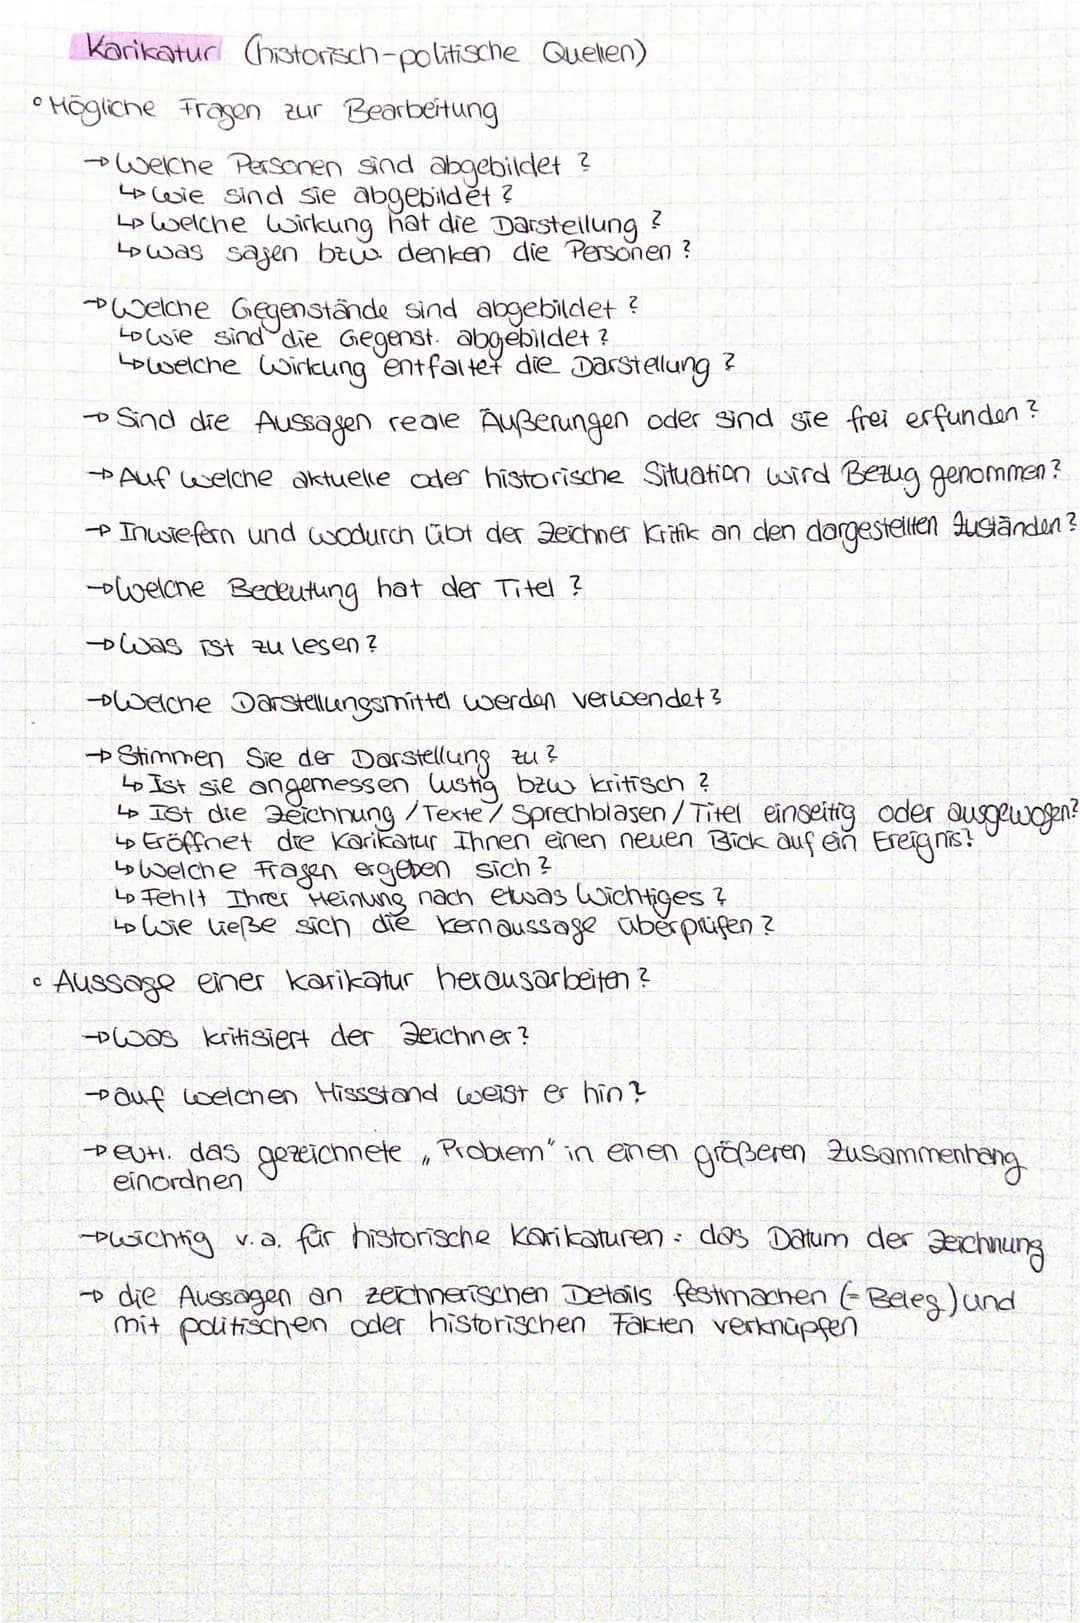 Karikatur (historisch-politische Quellen)
° Mögliche Fragen zur Bearbeitung
→ Welche Personen sind abgebildet ?
↳ Wie sind sie abgebildet ?
↳ Welche Wirkung hat die Darstellung ?
↳ Was sagen bzw. denken die Personen ?
→ Welche Gegenstände sind abgebildet ?
↳ Wie sind die Gegenst. abgebildet ?
↳ Welche Wirkung entfaltet die Darstellung ?
→ Sind die Aussagen reale Äußerungen oder sind sie frei erfunden ?
→ Auf welche aktuelle oder historische Situation wird Bezug genommen ?
→ Inwiefern und wodurch übt der Zeichner Kritik an den dargestellten Zuständen ?
→ Welche Bedeutung hat der Titel ?
→ Was ist zu lesen ?
→ Welche Darstellungsmittel werden verwendet ?
→ Stimmen Sie der Darstellung zu ?
↳ Ist sie angemessen lustig bzw kritisch ?
↳ Ist die Zeichnung / Texte / Sprechblasen / Titel einseitig oder ausgewogen ?
↳ Eröffnet die Karikatur Ihnen einen neuen Blick auf ein Ereignis ?
↳ Welche Fragen ergeben sich ?
↳ Fehlt Ihrer Meinung nach etwas Wichtiges ?
↳ Wie ließe sich die Kernaussage überprüfen ?
° Aussage einer Karikatur herausarbeiten ?
→ Was kritisiert der Zeichner ?
→ auf welchen Missstand weist er hin ?
→ evtl. das gezeichnete „Problem“ in einen größeren Zusammenhang
einordnen
→ wichtig v.a. für historische Karikaturen : das Datum der Zeichnung
→ die Aussagen an zeichnerischen Details festmachen (= Beleg) und
mit politischen oder historischen Fakten verknüpfen